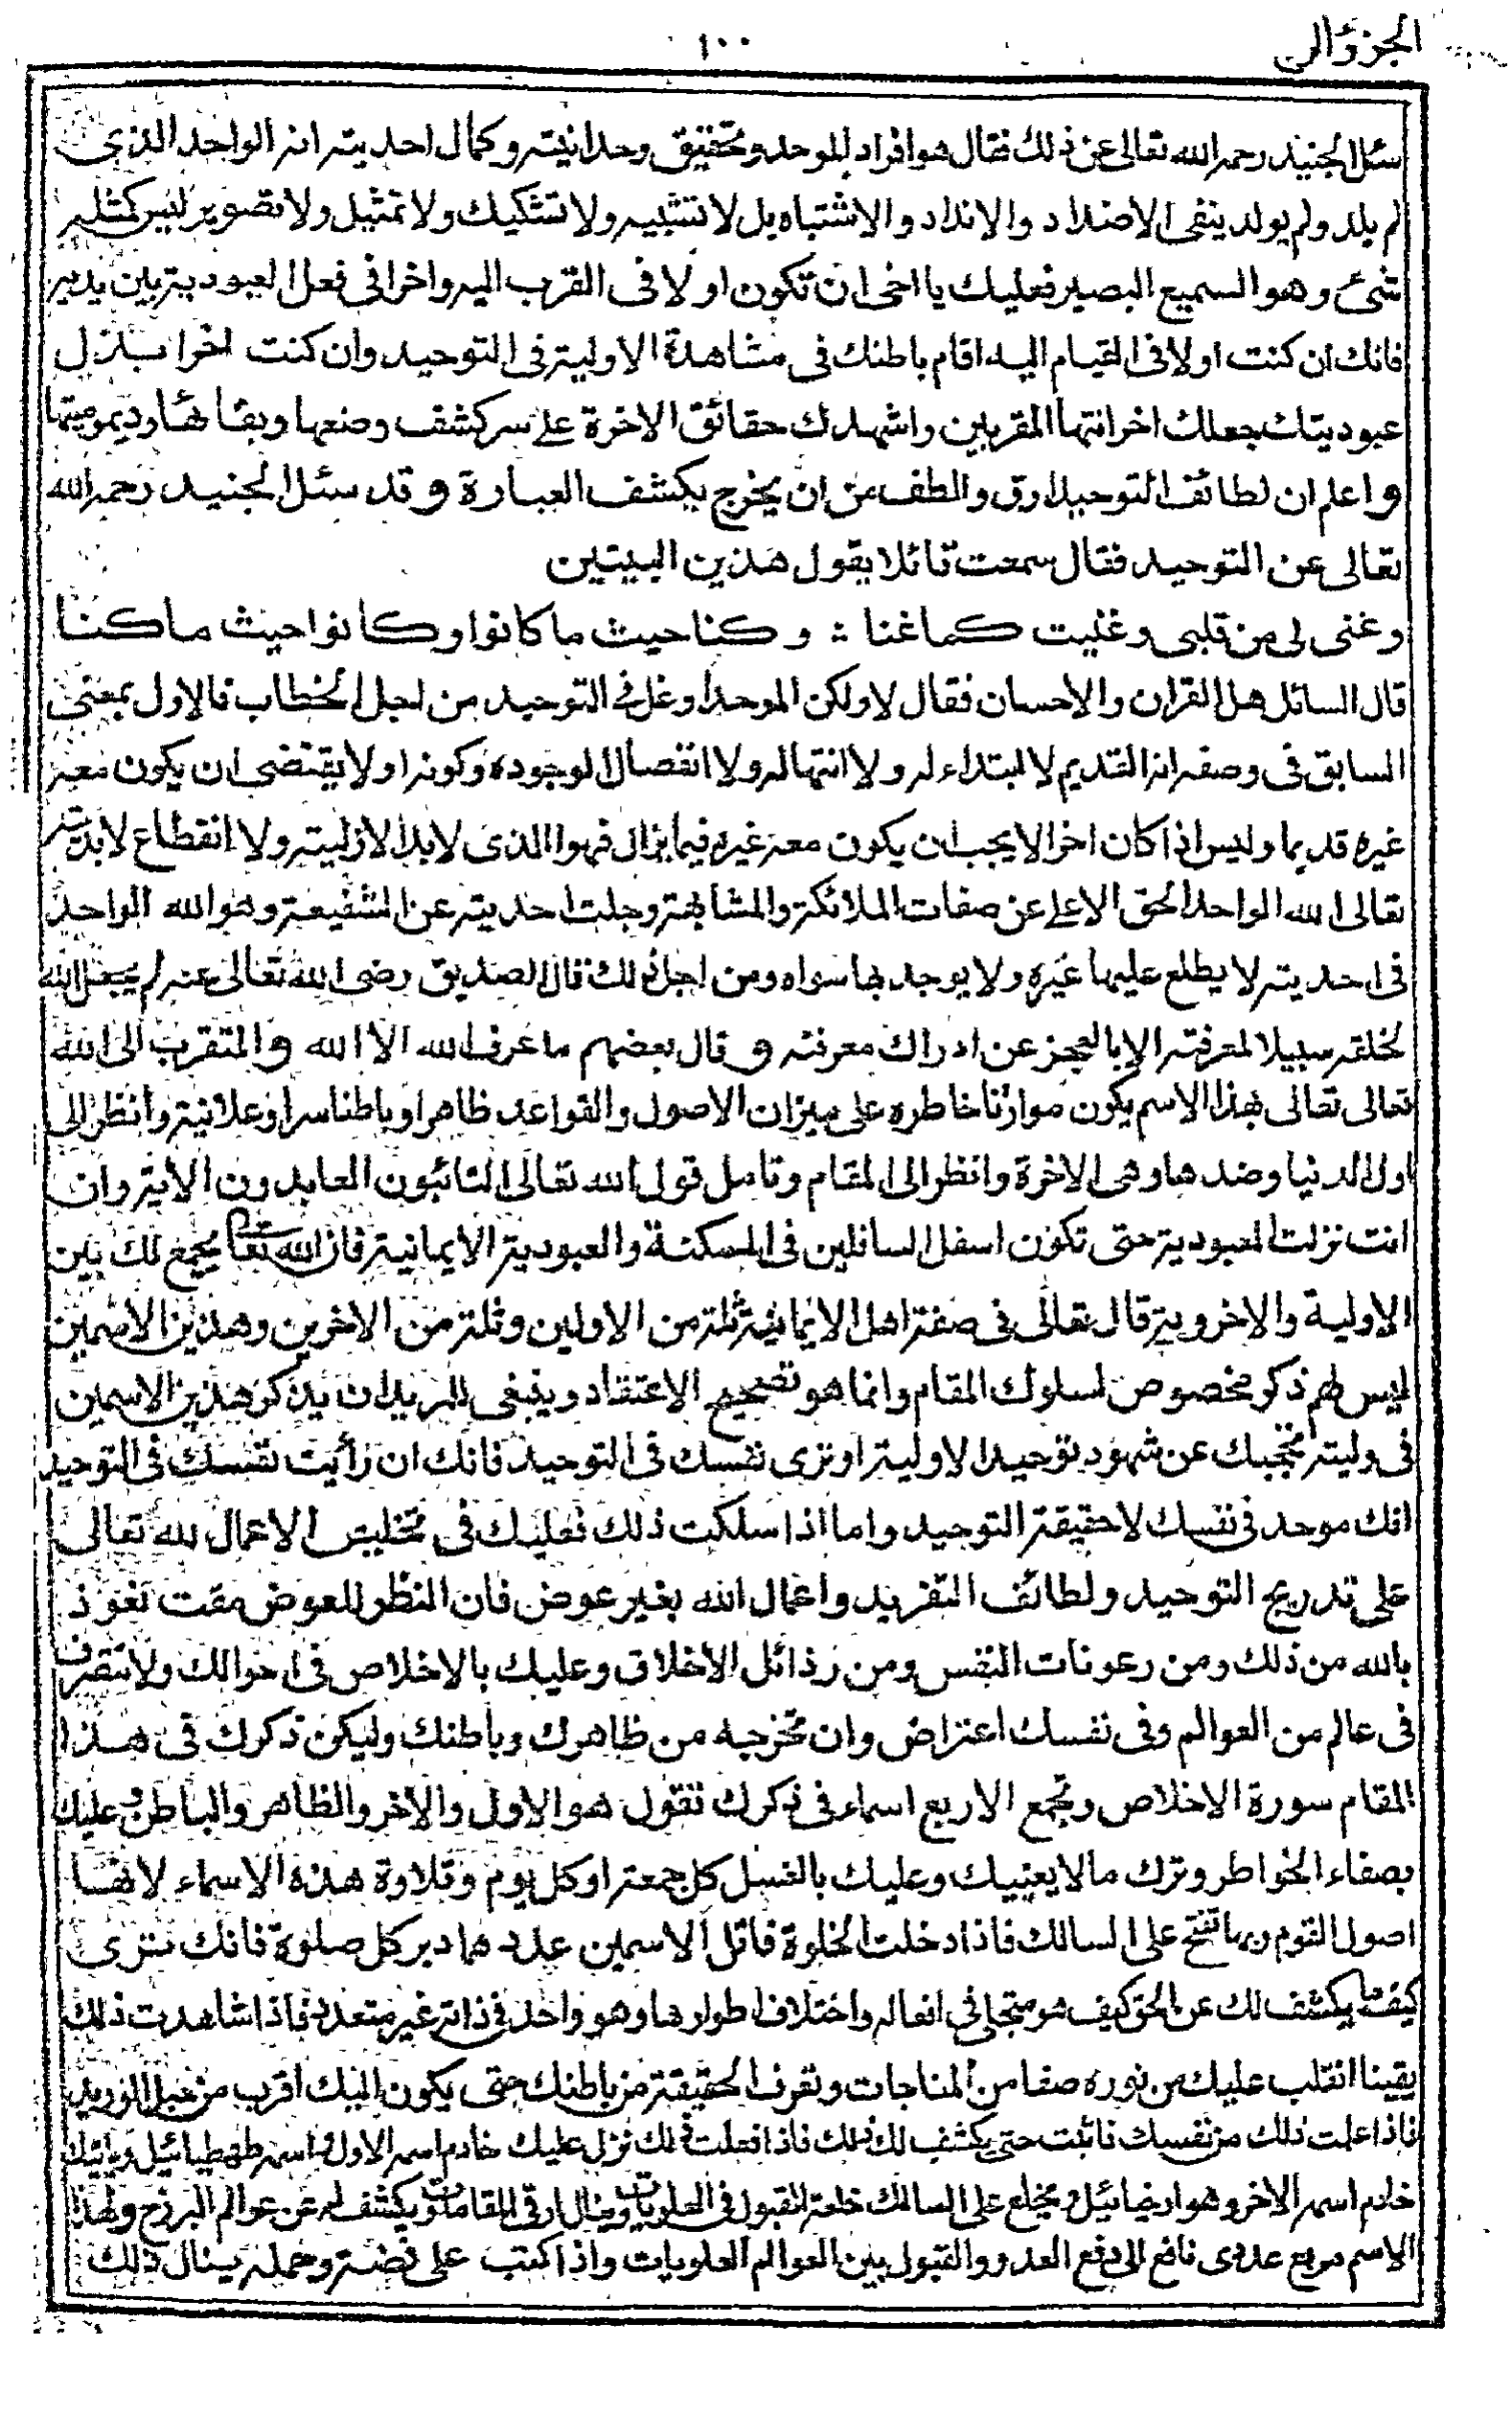 الجزؤالى
١٠٠
سئل الجنيد رحمه الله تعالى عن ذلك فقال هو افراد الموحد وتحقيق وحدانيته وكمال احديته انه الواحد الذى
لم يلد ولم يولد ينفى الاضداد والانداد والاشتباه بل لا تشبيه ولا تشكيك ولا تمثيل ولا تصوير ليس كمثله
شئ وهو السميع البصير فعليك يا اخى ان تكون اولا فى القرب اليه واخرا فى فعل العبودية بين يديه
فانك ان كنت اولا فى القيام اليه اقام باطنك فى مشاهدة الاولية فى التوحيد وان كنت اخرا بذل
عبوديتك جعلك اخر انتها المقربين واشهدك حقائق الاخرة على سر كشف وضعها وبقائها وديموميتها
واعلم ان لطائف التوحيد ارق والطف من ان يخرج بكشف العبارة وقد سئل الجنيد رحمه الله
تعالى عن التوحيد فقال سمعت قائلا يقول هذين البيتين
وغنى لى من قلبى وغنيت كماغنا ؛ وكنا حيث ما كانوا وكانوا حيث ما كنا
قال السائل هل القران والاحسان فقال لا ولكن الموحد اوغل فى التوحيد من اجل الخطاب فالاول بمعنى
السابق فى وصفه انه القديم لا ابتداء له ولا انتها له ولا انفصال لوجوده وكونه اولا يقتضى ان يكون معه
غيره قديما وليس اذا كان اخرا لا يجب ان يكون معه غيره فيما يزال فهوا الذى لا بدا لازليته ولا انقطاع لابديته
تعالى الله الواحد الحق الاعلى عن صفات الملائكة والمشابهة وجلت احديته عن الشفيعة وهو الله الواحد
فى احديته لا يطلع عليها غيره ولا يوجد بها سواه ومن اجل ذلك قال الصديق رضى الله تعالى عنه لم يجعل الله
لخلقه سبيلا لمعرفته الا بالعجز عن ادراك معرفته وقال بعضهم ما عرف الله الا الله والمتقرب الى الله
تعالى تعالى بهذا الاسم يكون موازنا خاطره على ميزان الاصول والقواعد ظاهرا وباطنا سرا وعلانية وانظر الى
اول الدنيا وضدها وهى الاخرة وانظر الى المقام وتامل قول الله تعالى التائبون العابدون الاية وان
انت نزلت لعبودية حتى تكون اسفل السافلين فى المسكنة والعبودية الايمانية فان الله تعا يجمع لك بين
الاولية والاخروية قال تعالى فى صفة اهل الايمانية ثلة من الاولين وثلة من الاخرين وهذين الاسمين
ليس لهم ذكر مخصوص لسلوك المقام وانما هو تصحيح الاعتقاد وينبغى للمريد ان يذكر هذين الاسمين
فى وليته تحجبك عن شهود توحيد الاولية او ترى نفسك فى التوحيد فانك ان رأيت نفسك فى التوحيد
انك موحد فى نفسك لا حقيقة التوحيد واما اذا سلكت ذلك فعليك فى تخليص الاعمال لله تعالى
على تدريج التوحيد ولطائف التفريد واعمال الله بغير عوض فان النظر للعوض مقت نعوذ
بالله من ذلك ومن رعونات النفس ومن رذائل الاخلاق وعليك بالاخلاص فى احوالك ولا تتصرف
فى عالم من العوالم وفى نفسك اعتراض وان تخرجه من ظاهرك وباطنك وليكن ذكرك فى هذا
المقام سورة الاخلاص وتجمع الاربع اسماء فى ذكرك تقول هو الاول والاخر والظاهر والباطن وعليك
بصفاء الخواطر وترك ما لا يعنيك وعليك بالغسل كل جمعة او كل يوم وتلاوة هذه الاسماء لانها
اصول القوم وبها تفتح على السالك فاذا دخلت الخلوة فاتل الاسمين عددهما دبر كل صلوة فانك سترى
كيفما يكشف لك عن الحق كيف هو متجلى فى افعاله واختلاف اطوارها وهو واحد فى ذاته غير متعدد فاذا شاهدت ذلك
يقينا انقلب عليك من نوره صفا من المناجات وتعرف الحقيقة من باطنك حتى يكون اليك اقرب من حبل الوريد
فاذا علمت ذلك من نفسك فاثبت حتى يكشف لك ذلك فاذا فعلت ذلك نزل عليك خادم اسمه الاول اسمه طهطيائيل وياتيك
خادم اسمه الاخر وهو ارضيائيل ويخلع على السالك خلعة القبول فى العلويات وينال ارقى المقامات ويكشف له عن عوالم البرزخ ولهذا
الاسم مربع عددى نافع الى دفع العدو والقبول بين العوالم العلويات واذا كتب على فضة وحمله ينال ذلك